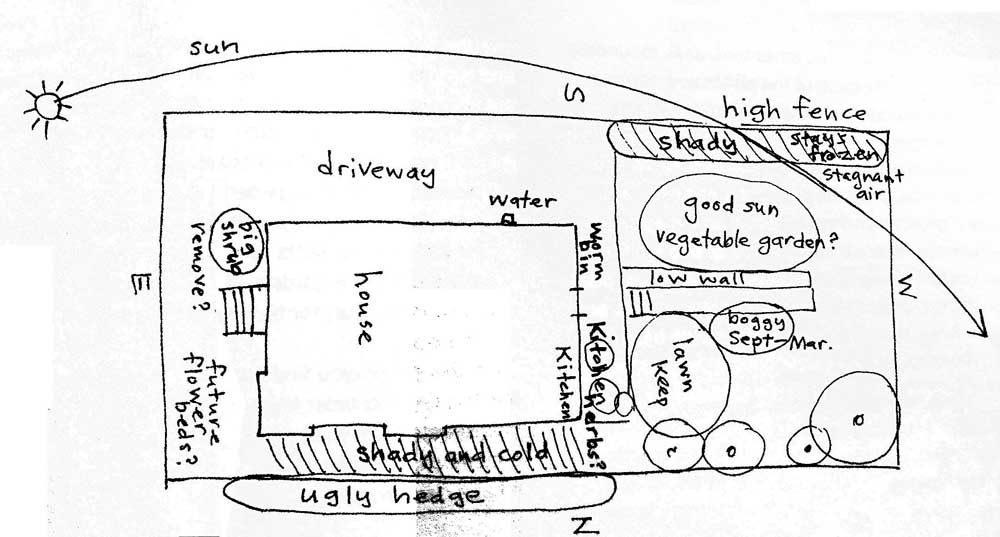 sun
S
high fence
shady
stays
frozen
stagnant
air
driveway
water
good sun
vegetable garden?
big
shrub
remove?
E
house
worm
bin
low wall
W
boggy
Sept-Mar.
lawn
keep
Kitchen
Kitchen herbs?
future
flower
beds?
shady and cold
ugly hedge
N